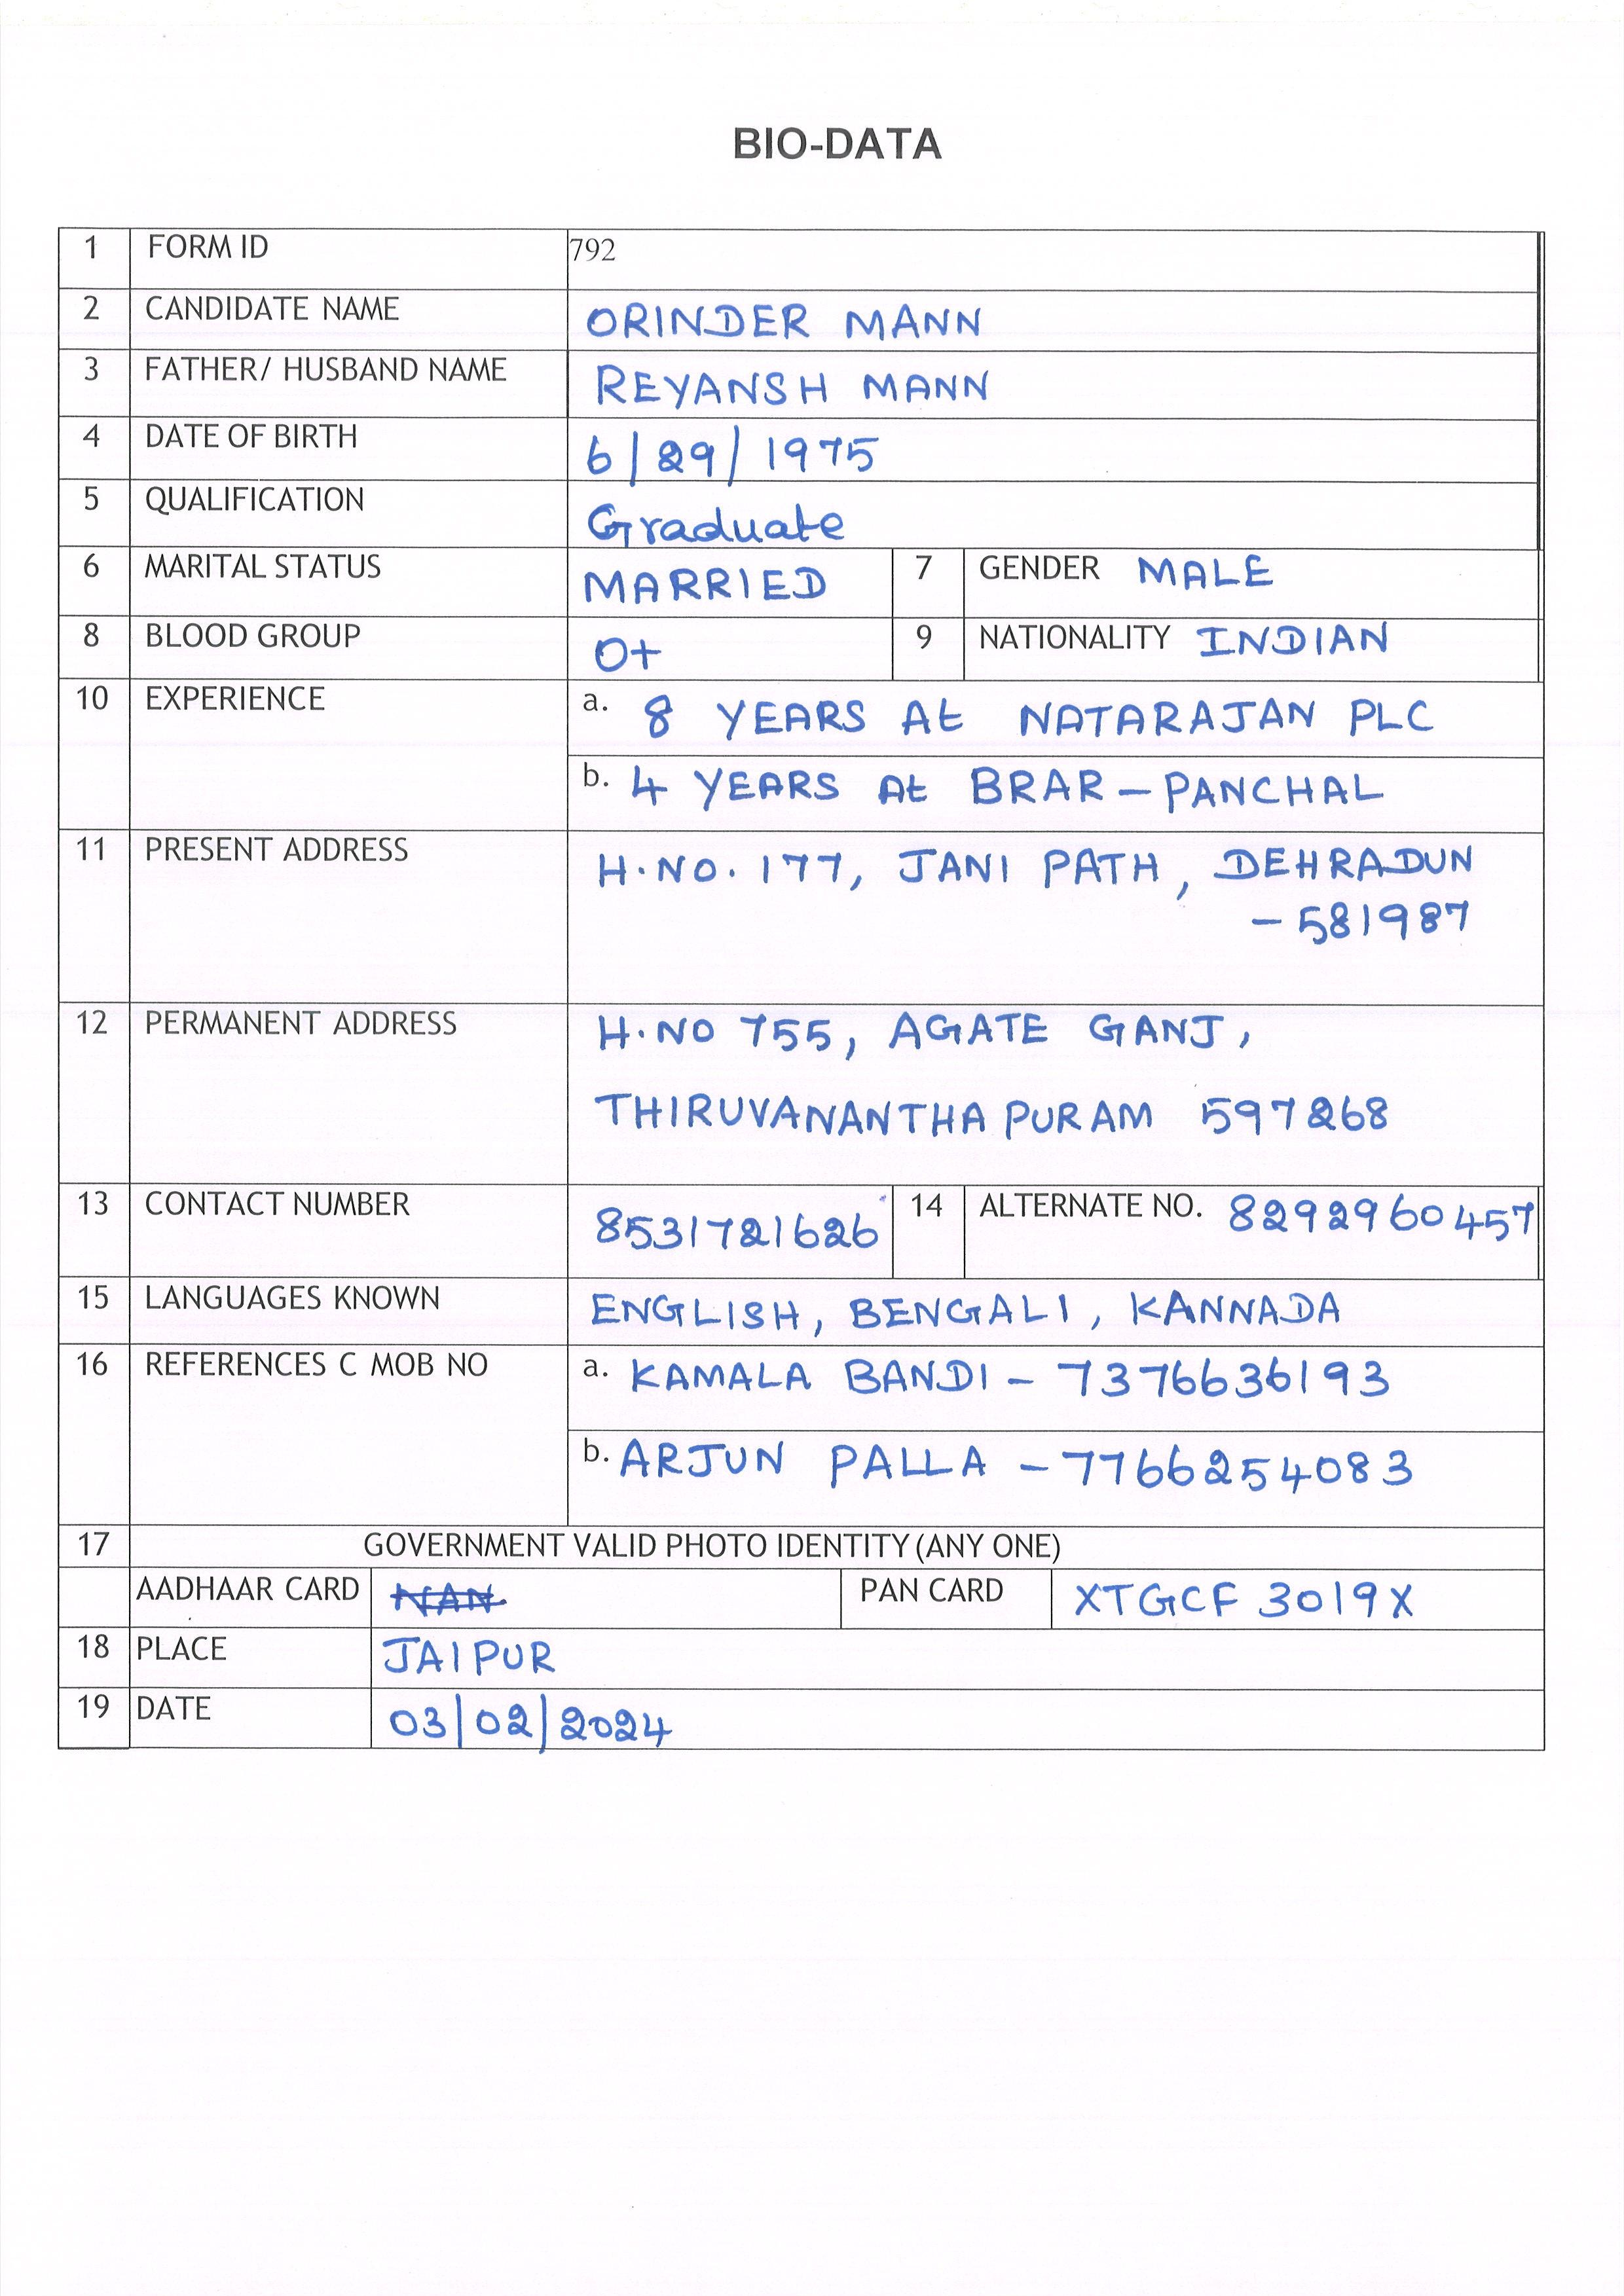 BIO-DATA
1 FORM ID 792
2 CANDIDATE NAME ORINDER MANN
3 FATHER/ HUSBAND NAME REYANSH MANN
4 DATE OF BIRTH 6/29/1975
5 QUALIFICATION Graduate
6 MARITAL STATUS MARRIED 7 GENDER MALE
8 BLOOD GROUP O+ 9 NATIONALITY INDIAN
10 EXPERIENCE a. 8 YEARS At NATARAJAN PLC
b. 4 YEARS At BRAR - PANCHAL
11 PRESENT ADDRESS H.NO. 177, JANI PATH, DEHRADUN
- 581987
12 PERMANENT ADDRESS H.NO 755, AGATE GANJ,
THIRUVANANTHAPURAM 597268
13 CONTACT NUMBER 8531721626 14 ALTERNATE NO. 8292960457
15 LANGUAGES KNOWN ENGLISH, BENGALI, KANNADA
16 REFERENCES C MOB NO a. KAMALA BANDI - 7376636193
b. ARJUN PALLA - 7766254083
17 GOVERNMENT VALID PHOTO IDENTITY (ANY ONE)
AADHAAR CARD NAN PAN CARD XTGCF 3019X
18 PLACE JAIPUR
19 DATE 03/02/2024